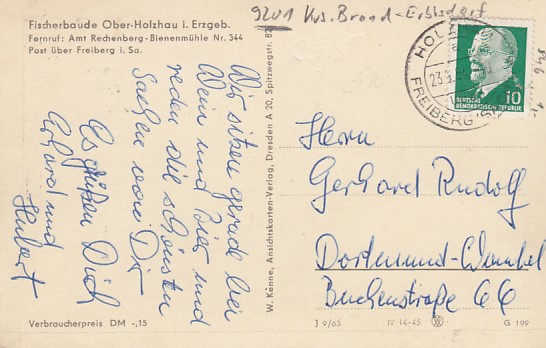 Fischerbaude Ober-Holzhau i. Erzgeb.
Fernruf: Amt Rechenberg-Bienenmühle Nr. 344
Post über Freiberg i. Sa.
9201 Krs. Brand-Erbisdorf
HOLZHAU
23.9.
FREIBERG
DEUTSCHE
DEMOKRATISCHE REPUBLIK
10
Wir sitzen gerade bei
Wein und Bier und
reden die schönsten
Sachen von Dir
Es grüßen Dich
Erhard und
Hubert
W. Kenne, Ansichtskarten-Verlag, Dresden A 20, Spitzwegstr. 82
Herrn
Gerhard Rudolf
Dortmund-Wambel
Buchenstraße 66
Verbraucherpreis DM -,15
J 9/63
IV-14-45
G 199